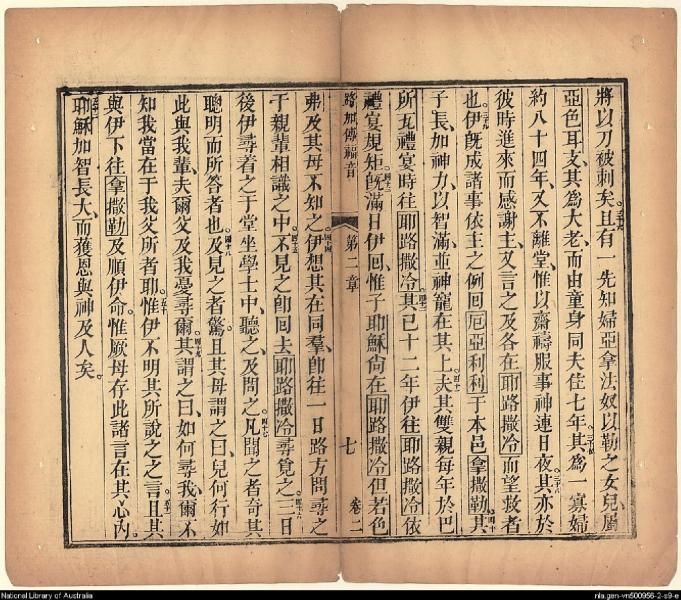 將以刀被刺矣。三十六且有一先知婦亞拿法奴以勒之女兒屬
亞色耳支、其為大老、而由童身同夫住七年。三十七其為一寡婦
約八十四年、又不離堂、惟以齋禱服事神連日夜。三十八其亦於
彼時進來而感謝主、又言之及各在耶路撒冷而望救者
也。三十九伊既成諸事依主之例回厄亞利利于本邑拿撒勒。四十其
子長、加神力、以智滿、並神寵在其上。四十一夫其雙親每年於巴
所瓦禮宴時往耶路撒冷。四十二其已十二年伊往耶路撒冷依
禮宴規矩。四十三既滿日伊回、惟子耶穌尚在耶路撒冷但若色
路加傳福音 第二章 七 卷二
弗及其母不知之。四十四伊想其在同羣、即往一日路方問尋之
于親輩相識之中。四十五不見之即回去耶路撒冷尋覓之。四十六三日
後伊尋着之于堂坐學士中、聽之、及問之。四十七凡聞之者奇其
聰明而所答者也。四十八及見之者驚。且其母謂之曰、兒何行如
此與我輩、夫爾父及我憂尋爾。四十九其謂之曰、如何尋我、爾不
知我當在于我父所者耶。五十惟伊不明其所說之之言。五十一且其
與伊下往拿撒勒及順伊命。惟厥母存此諸言在其心內。
五十二耶穌加智長大、而獲恩與神及人矣。
National Library of Australia
nla.gen-vn500956-2-s9-e